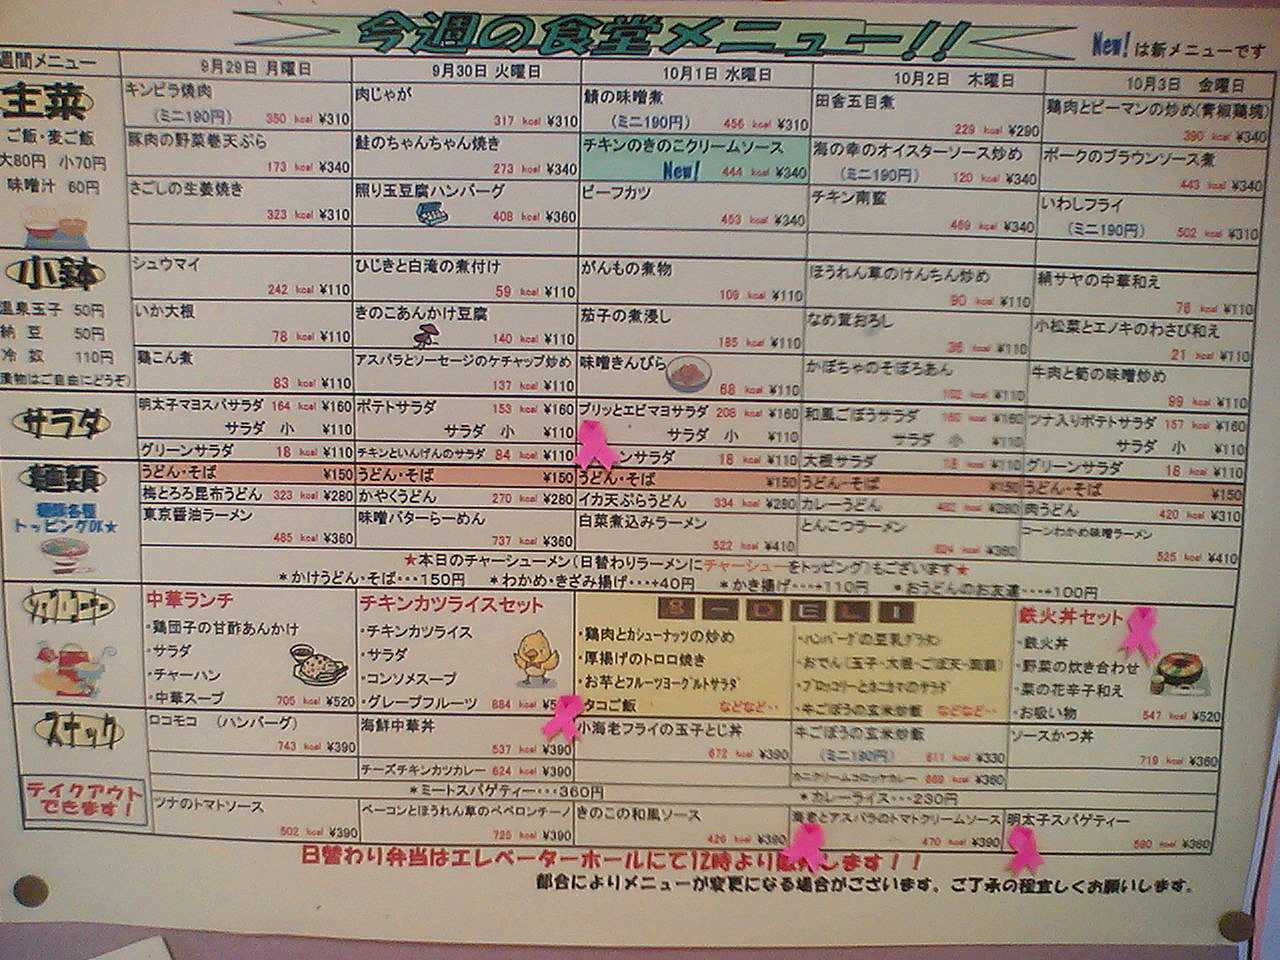 今週の食堂メニュー!!
New!は新メニューです
週間メニュー
9月29日 月曜日
9月30日 火曜日
10月1日 水曜日
10月2日 木曜日
10月3日 金曜日
主菜
ご飯・麦ご飯
大80円 小70円
味噌汁 60円
キンピラ焼肉
(ミニ190円) 350 kcal ¥310
肉じゃが
317 kcal ¥310
鯖の味噌煮
(ミニ190円) 456 kcal ¥310
田舎五目煮
229 kcal ¥290
鶏肉とピーマンの炒め(青椒鶏塊)
390 kcal ¥340
豚肉の野菜巻天ぷら
173 kcal ¥340
鮭のちゃんちゃん焼き
273 kcal ¥340
チキンのきのこクリームソース
New! 444 kcal ¥340
海の幸のオイスターソース炒め
(ミニ190円) 120 kcal ¥340
ポークのブラウンソース煮
443 kcal ¥340
さごしの生姜焼き
323 kcal ¥310
照り玉豆腐ハンバーグ
408 kcal ¥360
ビーフカツ
453 kcal ¥340
チキン南蛮
459 kcal ¥340
いわしフライ
(ミニ190円) 502 kcal ¥310
小鉢
温泉玉子 50円
納豆 50円
冷奴 110円
漬物はご自由にどうぞ)
シュウマイ
242 kcal ¥110
ひじきと白滝の煮付け
59 kcal ¥110
がんもの煮物
109 kcal ¥110
ほうれん草のけんちん炒め
90 kcal ¥110
絹サヤの中華和え
76 kcal ¥110
いか大根
78 kcal ¥110
きのこあんかけ豆腐
140 kcal ¥110
茄子の煮浸し
185 kcal ¥110
なめ茸おろし
36 kcal ¥110
小松菜とエノキのわさび和え
21 kcal ¥110
鶏こん煮
83 kcal ¥110
アスパラとソーセージのケチャップ炒め
137 kcal ¥110
味噌きんぴら
68 kcal ¥110
かぼちゃのそぼろあん
kcal ¥110
牛肉と筍の味噌炒め
99 kcal ¥110
サラダ
明太子マヨスパサラダ 164 kcal ¥160
ポテトサラダ 153 kcal ¥160
プリッとエビマヨサラダ 208 kcal ¥160
和風ごぼうサラダ kcal ¥160
ツナ入りポテトサラダ 157 kcal ¥160
サラダ 小 ¥110
サラダ 小 ¥110
サラダ 小 ¥110
サラダ 小 ¥110
サラダ 小 ¥110
グリーンサラダ 18 kcal ¥110
チキンといんげんのサラダ 84 kcal ¥110
ンサラダ 18 kcal ¥110
大根サラダ kcal ¥110
グリーンサラダ 18 kcal ¥110
麺類
麺類各種
トッピングOK★
うどん・そば ¥150
うどん・そば ¥150
うどん・そば ¥150
うどん・そば ¥150
うどん・そば ¥150
梅とろろ昆布うどん 323 kcal ¥280
かやくうどん 270 kcal ¥280
イカ天ぷらうどん 334 kcal ¥280
カレーうどん kcal ¥280
肉うどん 420 kcal ¥310
東京醤油ラーメン
485 kcal ¥360
味噌バターらーめん
737 kcal ¥360
白菜煮込みラーメン
522 kcal ¥410
とんこつラーメン
kcal ¥360
コーンわかめ味噌ラーメン
525 kcal ¥410
★本日のチャーシューメン(日替わりラーメンにチャーシューをトッピング)もございます★
*かけうどん・そば・・・150円 *わかめ・きざみ揚げ・・・+40円 *かき揚げ・・・+110円 *おうどんのお友達・・・+100円
中華ランチ
・鶏団子の甘酢あんかけ
・サラダ
・チャーハン
・中華スープ 705 kcal ¥520
チキンカツライスセット
・チキンカツライス
・サラダ
・コンソメスープ
・グレープフルーツ 884 kcal
DELI
・鶏肉とカシューナッツの炒め
・厚揚げのトロロ焼き
・お芋とフルーツヨーグルトサラダ
タコご飯 などなど・・
・ハンバーグの豆乳グラタン
・おでん(玉子・大根・ごぼ天・
・ブロッコリーとカニカマのサラダ
・牛ごぼうの玄米炒飯 などなど・・
鉄火丼セット
・鉄火丼
・野菜の炊き合わせ
・菜の花辛子和え
・お吸い物 547 kcal ¥520
スナック
テイクアウト
できます!
ロコモコ (ハンバーグ)
743 kcal ¥390
海鮮中華丼
537 kcal ¥390
小海老フライの玉子とじ丼
672 kcal ¥390
牛ごぼうの玄米炒飯
(ミニ190円) 611 kcal ¥330
ソースかつ丼
719 kcal ¥360
チーズチキンカツカレー 624 kcal ¥390
カニクリームコロッケカレー 669 kcal ¥360
*ミートスパゲティー・・・360円
*カレーライス・・・230円
ツナのトマトソース
502 kcal ¥390
ベーコンとほうれん草のペペロンチーノ
725 kcal ¥390
きのこの和風ソース
426 kcal ¥390
海老とアスパラのトマトクリームソース
470 kcal ¥390
明太子スパゲティー
580 kcal ¥360
日替わり弁当はエレベーターホールにて12時より します!!
都合によりメニューが変更になる場合がございます。ご了承の程宜しくお願いします。